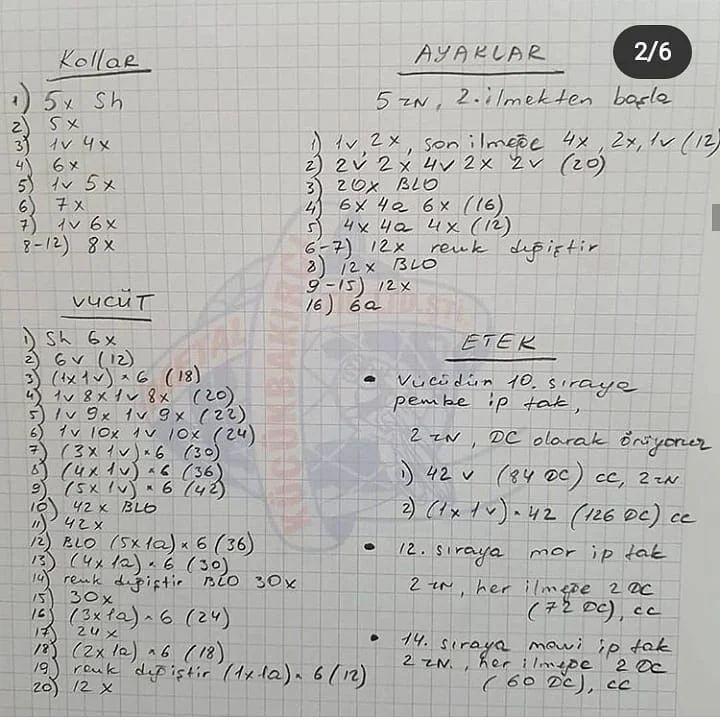 2/6
Kollar
1) 5x Sh
2) 5x
3) 1v 4x
4) 6x
5) 1v 5x
6) 7x
7) 1v 6x
8-12) 8x
VÜCÜT
1) Sh 6x
2) 6v (12)
3) (1x1v)*6 (18)
4) 1v 8x1v 8x (20)
5) 1v 9x 1v 9x (22)
6) 1v 10x 1v 10x (24)
7) (3x 1v)*6 (30)
8) (4x 1v)*6 (36)
9) (5x 1v)*6 (42)
10) 42x BLO
11) 42x
12) BLO (5x1a)*6 (36)
13) (4x1a)*6 (30)
14) renk değiştir BLO 30x
15) 30x
16) (3x1a)*6 (24)
17) 24x
18) (2x1a)*6 (18)
19) renk değiştir (1x1a)*6 (12)
20) 12x
AYAKLAR
5 zn, 2. ilmekten başla
1) 1v, 2x, son ilmeğe 4x, 2x, 1v (12)
2) 2v 2x 4v 2x 2v (20)
3) 20x BLO
4) 6x 4a 6x (16)
5) 4x 4a 4x (12)
6-7) 12x renk değiştir
8) 12x BLO
9-15) 12x
16) 6a
ETEK
• Vücüdün 10. sıraya
pembe ip tak,
2 zn, DC olarak örüyoruz
1) 42 v (84 DC) cc, 2 zn
2) (1x1v)*42 (126 DC) cc
• 12. sıraya mor ip tak
2 zn, her ilmeğe 2 DC
(72 DC), cc
• 14. sıraya mavi ip tak
2 zn., her ilmeğe 2 DC
(60 DC), cc
METAL
KÜÇÜKBAKIRCI